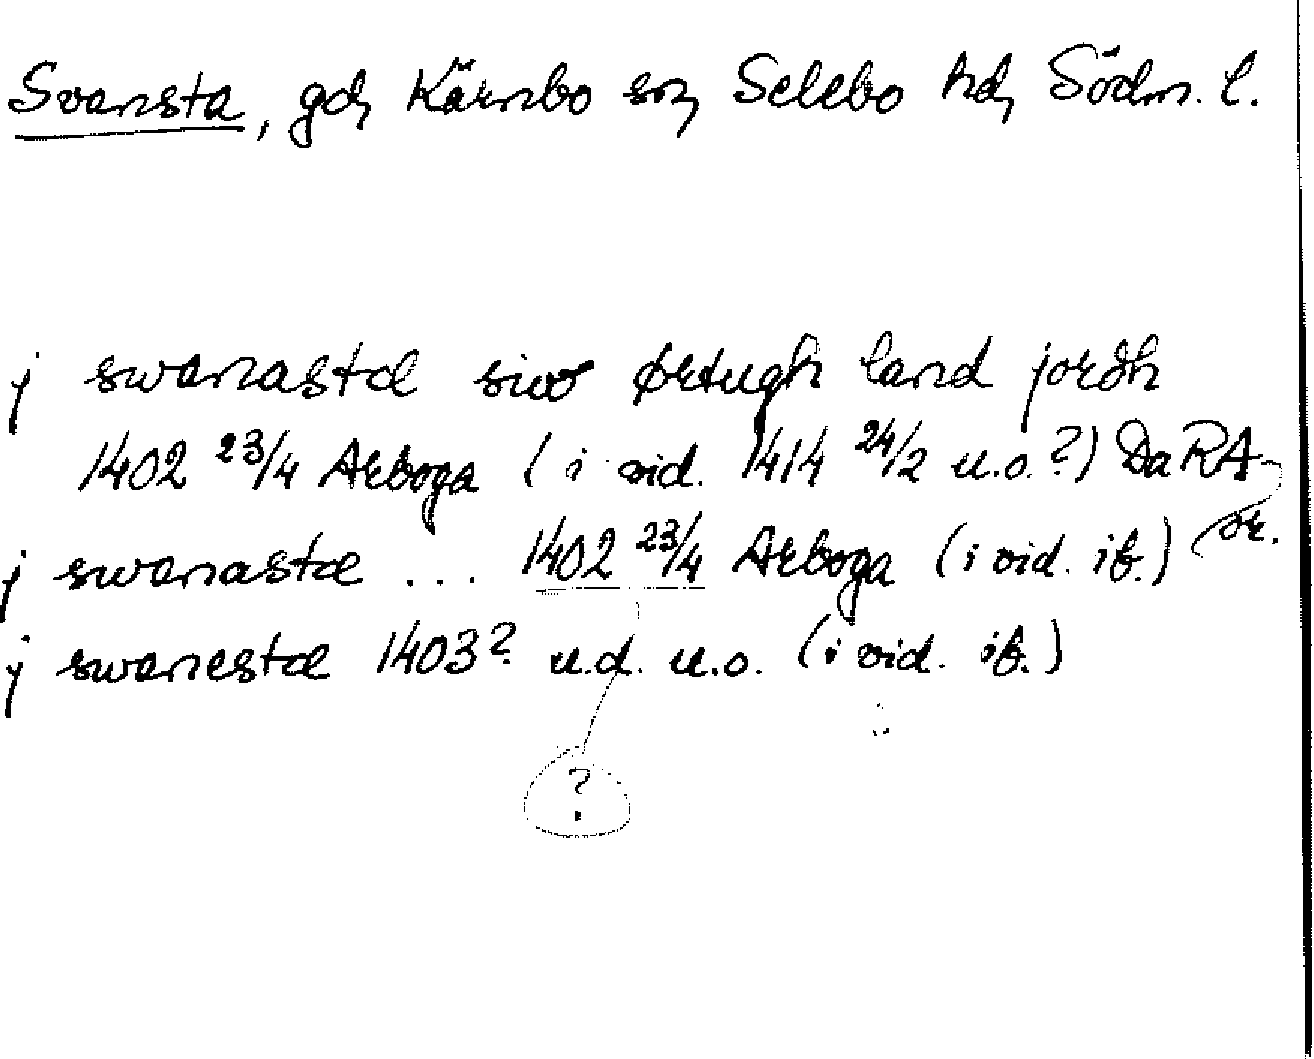 Svansta, gd, Kärnbo sn, Selebo hd, Södm. l.
j swanastæ siw ørtugh land jordh
1402 23/4 Arboga (i vid. 1414 24/2 u.o.?) Da RA
or.
j swanastæ ... 1402 23/4 Arboga (i vid. ib.)
j swanestæ 1403? u.d. u.o. (i vid. ib.)
?